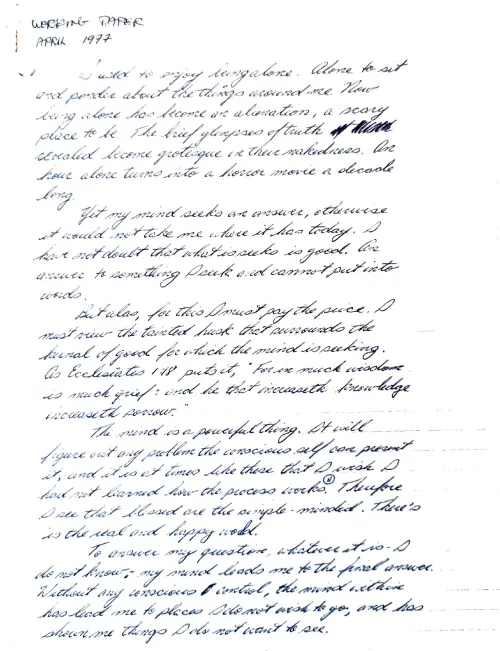 WORKING PAPER
APRIL 1977
I used to enjoy being alone. Alone to sit
and ponder about the things around me. Now
being alone has become an alienation, a scary
place to be. The brief glimpses of truth
revealed become grotesque in their nakedness. An
hour alone turns into a horror movie a decade
long.
Yet my mind seeks an answer, otherwise
it would not take me where it has today. I
have not doubt that what is seeks is good. An
answer to something I seek and cannot put into
words.
But alas, for this I must pay the price. I
must view the tainted husk that surrounds the
kernal of good for which the mind is seeking.
As Ecclesiastes 1:18 puts it, "For in much wisdom
is much grief: and he that increaseth knowledge
increaseth sorrow."
The mind is a powerful thing. It will
figure out any problem the conscious self can present
it, and it is at times like these that I wish I
had not learned how the process works. Therefore
I see that blessed are the simple-minded. There's
is the real and happy world.
To answer my question, whatever it is - I
do not know, - my mind leads me to the final answer.
Without any conscious control, the mind within
has lead me to places I do not wish to go, and has
shown me things I do not want to see.